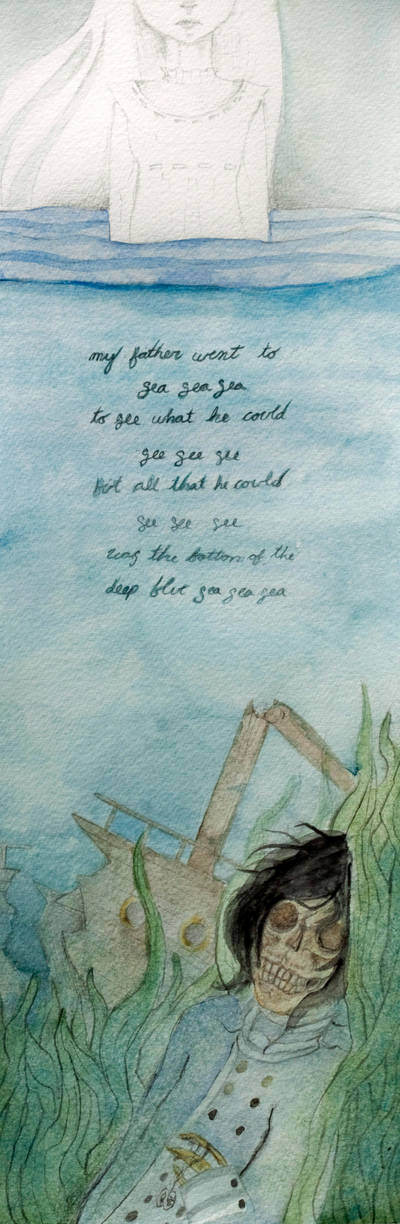 my father went to
sea sea sea
to see what he could
see see see
but all that he could
see see see
was the bottom of the
deep blue sea sea sea